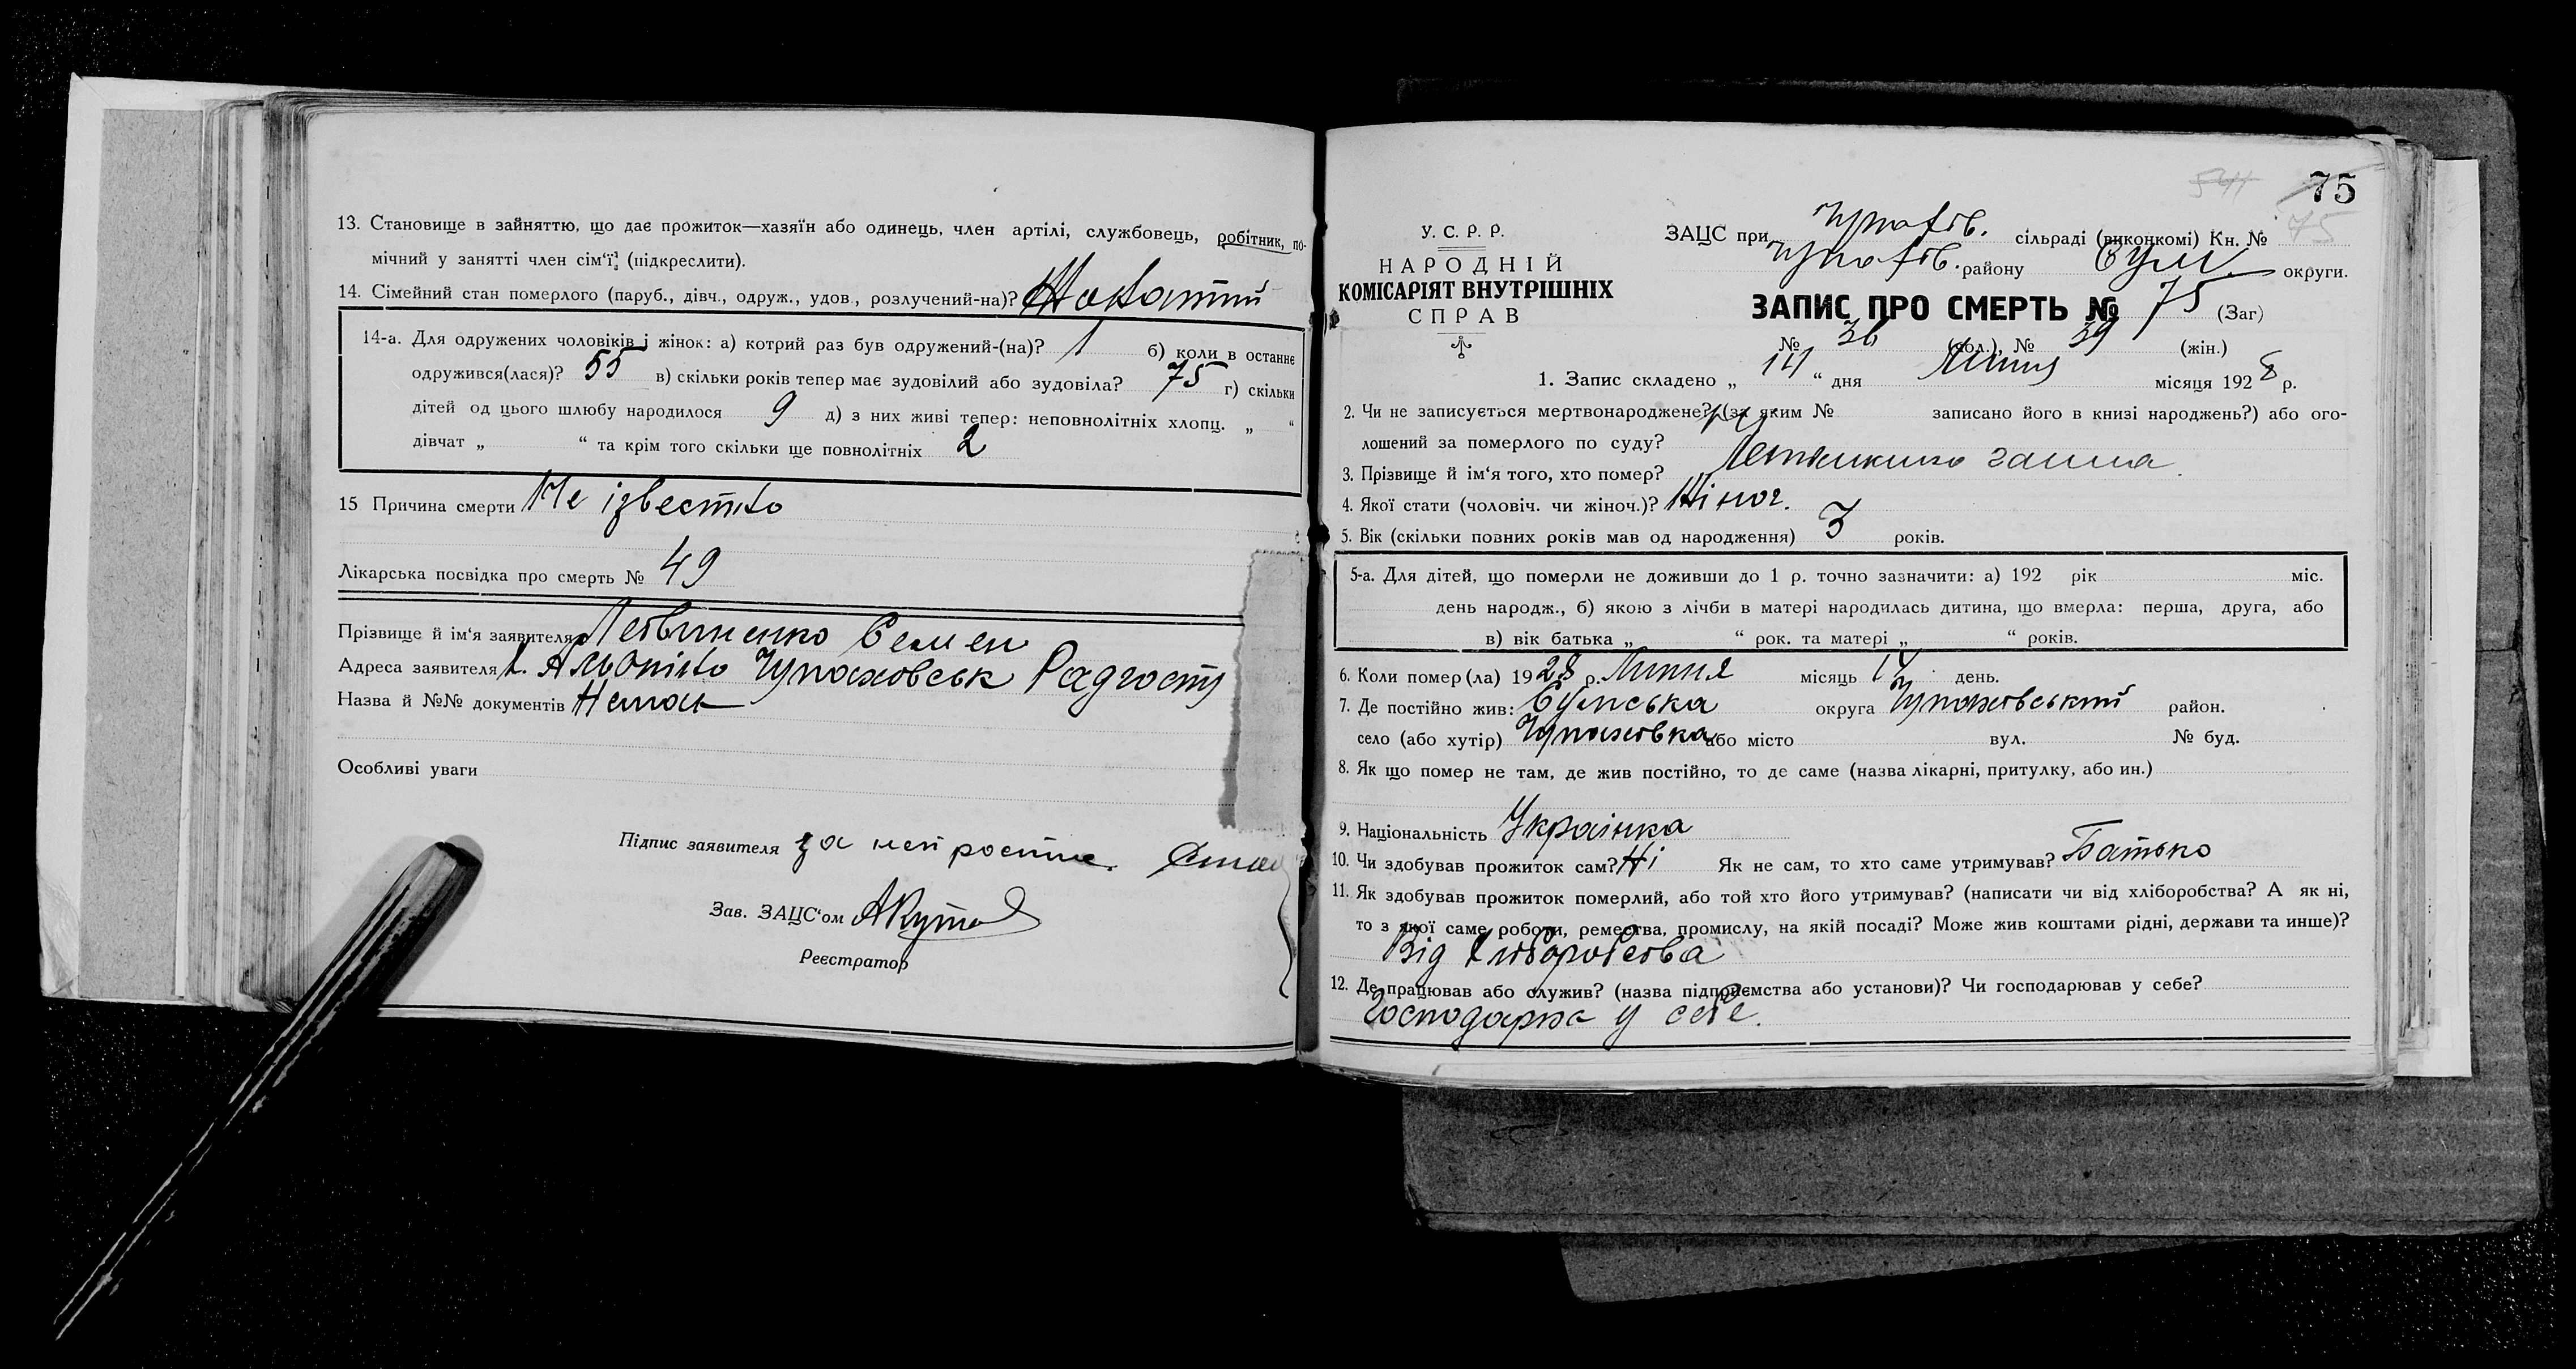 13. Становище в зайняттю, що дає прожиток—хазяїн або одинець, член артілі, службовець, робітник, по-
мічний у занятті член сім'ї (підкреслити).
14. Сімейний стан померлого (паруб., дівч., одруж., удов., розлучений-на)?
14-а. Для одружених чоловіків і жінок: а) котрий раз був одружений-(на)? 1 б) коли в останнє
одружився(лася)? 55 в) скільки років тепер має зудовілий або зудовіла? 75 г) скільки
дітей од цього шлюбу народилося 9 д) з них живі тепер: неповнолітніх хлопц. „ “
дівчат „ “ та крім того скільки ще повнолітніх 2
15 Причина смерти Не ізвестно
Лікарська посвідка про смерть № 49
Прізвище й ім'я заявителя Семен
Адреса заявителя Чупаховськ Радгосту
Назва й №№ документів Немає
Особливі уваги
Підпис заявителя за
Зав. ЗАЦС'ом
Реєстратор
75
541
75
У. С. Р. Р.
НАРОДНІЙ
КОМІСАРІЯТ ВНУТРІШНІХ
СПРАВ
ЗАЦС при Чупахів. сільраді (виконкомі) Кн. №
Чупахів. району Сум. округи.
ЗАПИС ПРО СМЕРТЬ № 75 (Заг)
№ 36 (чол.), № 39 (жін.)
1. Запис складено „ 14 “ дня Липня місяця 1928 р.
2. Чи не записується мертвонароджене? (за яким № записано його в книзі народжень?) або ого-
лошений за померлого по суду?
3. Прізвище й ім'я того, хто помер? ганна
4. Якої стати (чоловіч. чи жіноч.)? Жіноч.
5. Вік (скільки повних років мав од народження) 3 років.
5-а. Для дітей, що померли не доживши до 1 р. точно зазначити: а) 192 рік міс.
день народж., б) якою з лічби в матері народилась дитина, що вмерла: перша, друга, або
в) вік батька „ “ рок. та матері „ “ років.
6. Коли помер(ла) 1928 р. Липня місяць 14 день.
7. Де постійно жив: Сумська округа Чупаховський район.
село (або хутір) Чупаховка або місто вул. № буд.
8. Як що помер не там, де жив постійно, то де саме (назва лікарні, притулку, або ин.)
9. Національність Українка
10. Чи здобував прожиток сам? Ні Як не сам, то хто саме утримував? Батько
11. Як здобував прожиток померлий, або той хто його утримував? (написати чи від хліборобства? А як ні,
то з якої саме роботи, ремества, промислу, на якій посаді? Може жив коштами рідні, держави та инше)?
Від хліборобства
12. Де працював або служив? (назва підприємства або установи)? Чи господарював у себе?
у себе.